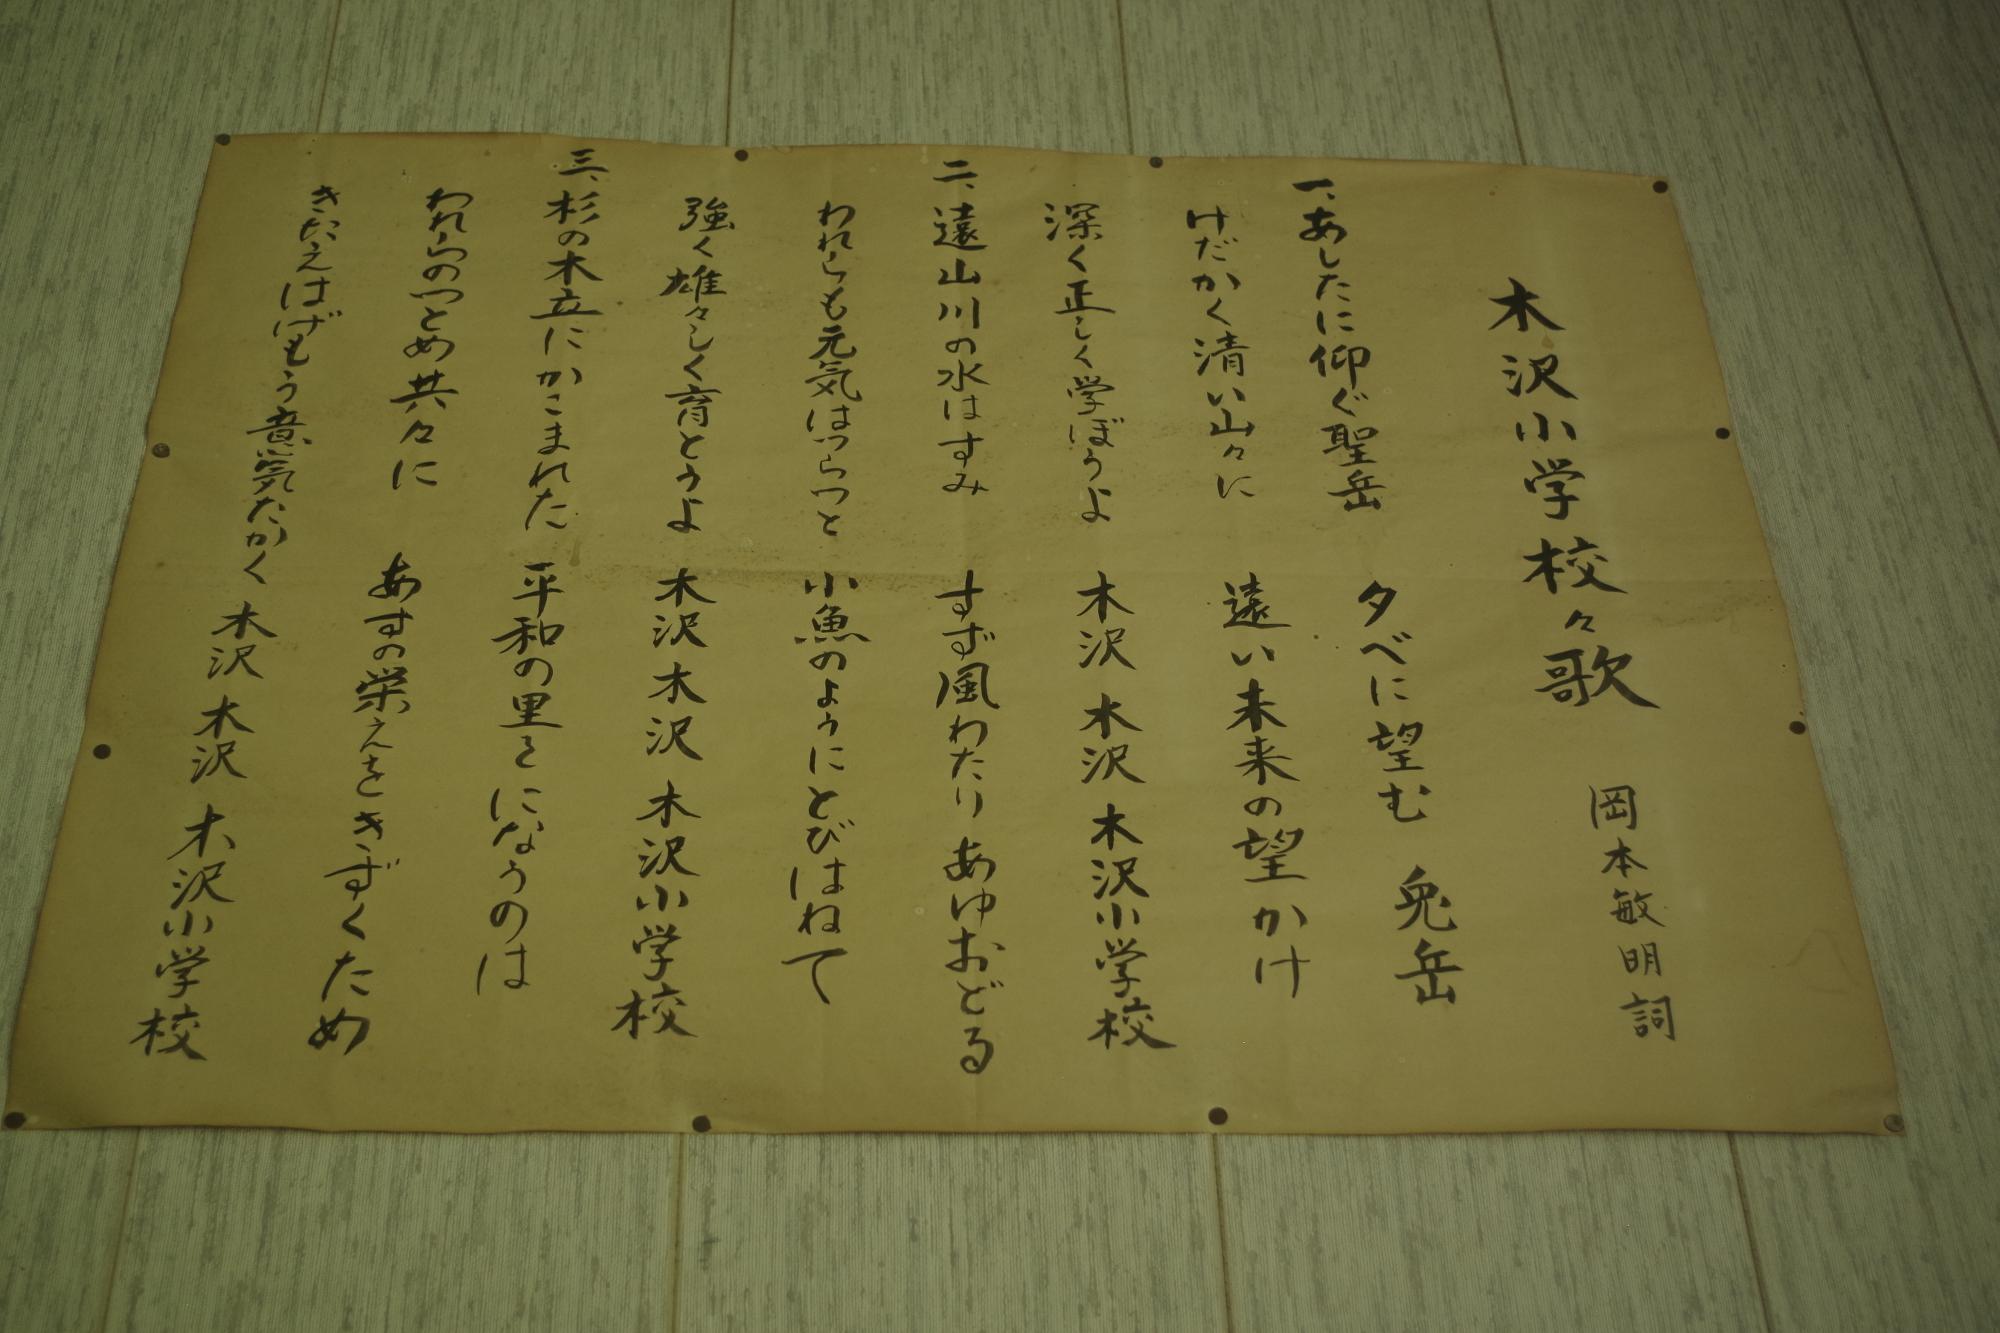 木沢小学校々歌
岡本敏明詞
一、あしたに仰ぐ聖岳 夕べに望む 兎岳
けだかく清い山々に 遠い未来の望かけ
深く正しく学ぼうよ 木沢 木沢 木沢小学校
二、遠山川の水はすみ すず風わたり あゆおどる
われらも元気はつらつと 小魚のようにとびはねて
強く雄々しく育とうよ 木沢 木沢 木沢小学校
三、杉の木立にかこまれた 平和の里をになうのは
われらのつとめ共々に あすの栄えをきずくため
きたえはげもう意気たかく 木沢 木沢 木沢小学校